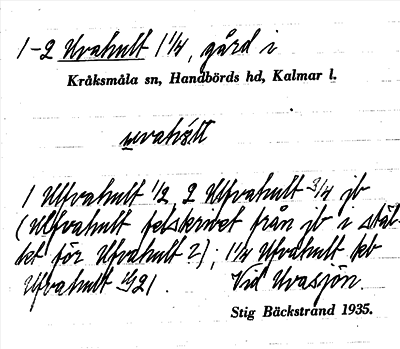 1-2 Uvahult 1 1/4, gård i
Kråksmåla sn, Handbörds hd, Kalmar l.
1 Ulfvahult 1/2, 2 Ulfvahult 3/4 jb
(Ulfvahult felskrivet från jb i stäl-
let för Ufvahult ?); 1 1/4 Ufvahult kb
Ufvahult 21. Vid Uvasjön.
Stig Bäckstrand 1935.